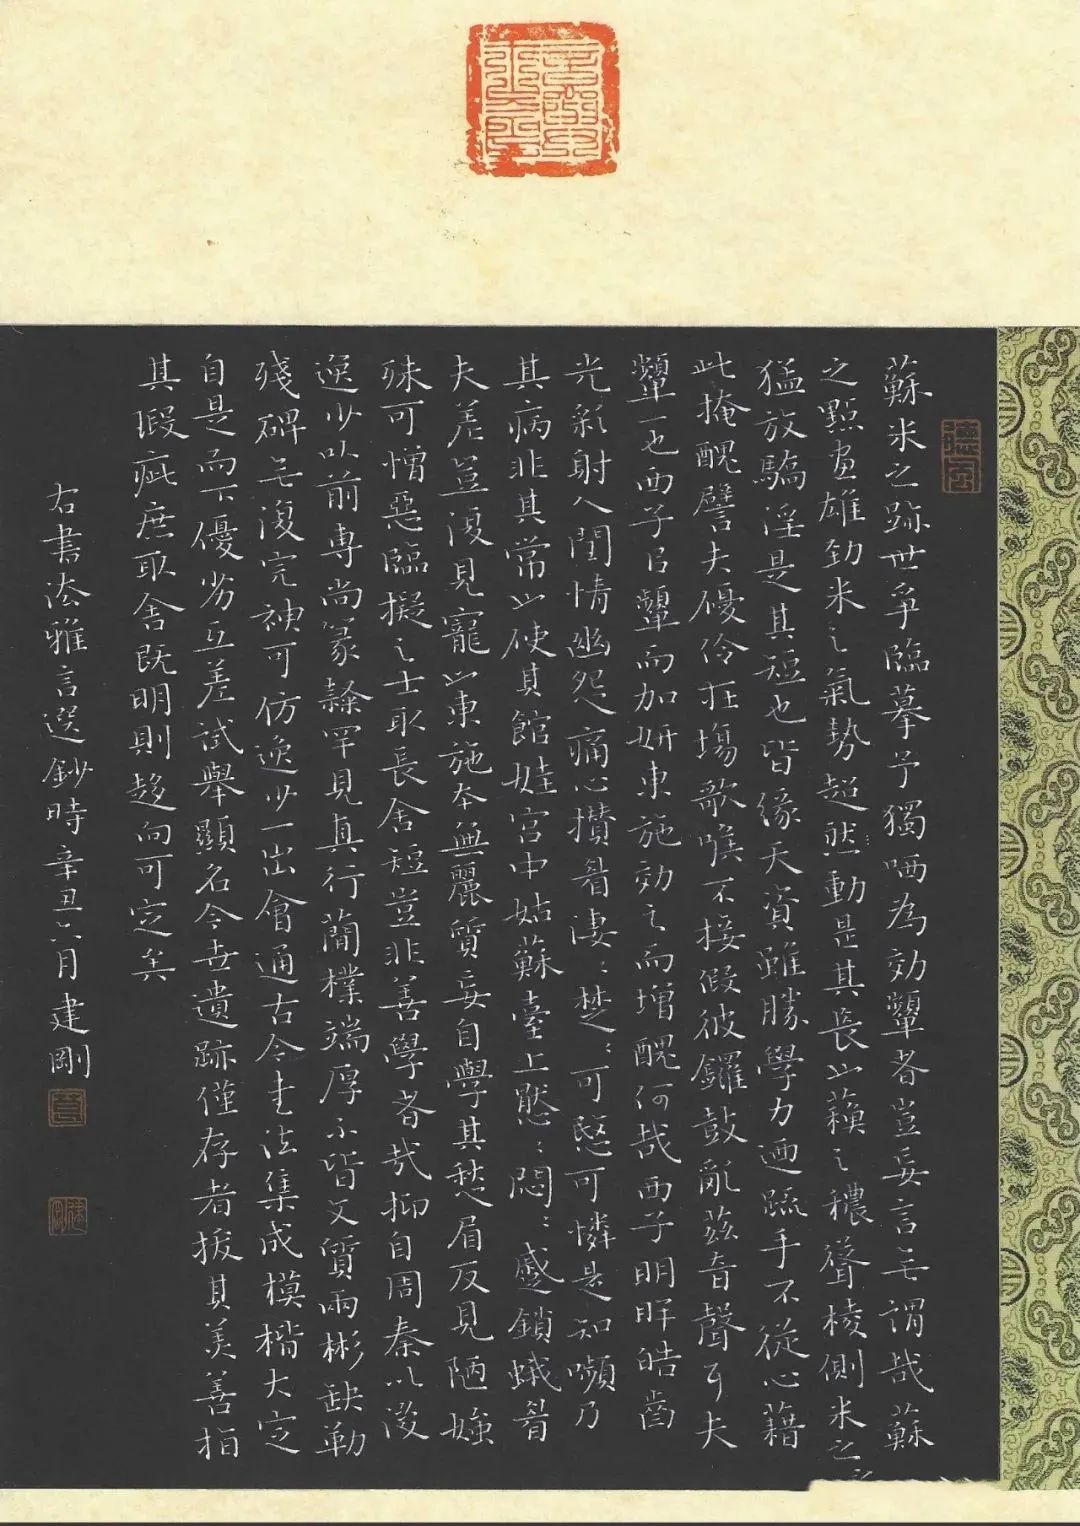 蘇米之跡世爭臨摹予獨哂為効顰者豈妄言無謂哉蘇
之點畫雄勁米之氣勢超然動是其長也蘇之穠聳棱側米之
猛放驕淫是其短也皆緣天資雖勝學力乃疏手不從心藉
此掩醜譬夫優伶在場歌喉不接假彼鑼鼓亂茲音聲耳夫
顰一也西子以顰而加妍東施効之而增醜何哉西子明眸皓齒
光彩射人閨情幽怨痛心攢眉淒〻楚〻可愍可憐是知嚬乃
其病非其常也使其館娃宮中姑蘇臺上愁〻悶〻蹙鎖蛾眉
夫差豈復見寵也東施本無麗質妄自學其愁眉反見陋媸
殊可憎惡臨擬之士取長舍短豈非善學者哉抑自周秦以後
逸少以前專尚篆隸罕見真行簡樸端厚不皆文質兩彬缺勒
殘碑無復完神可仿逸少一出會通古今書法集成模楷大定
自是而下優劣互差試舉顯名今世遺跡僅存者拔其美善指
其瑕疵庶取舍既明則趨向可定矣
右書法雅言選鈔時辛丑六月建剛